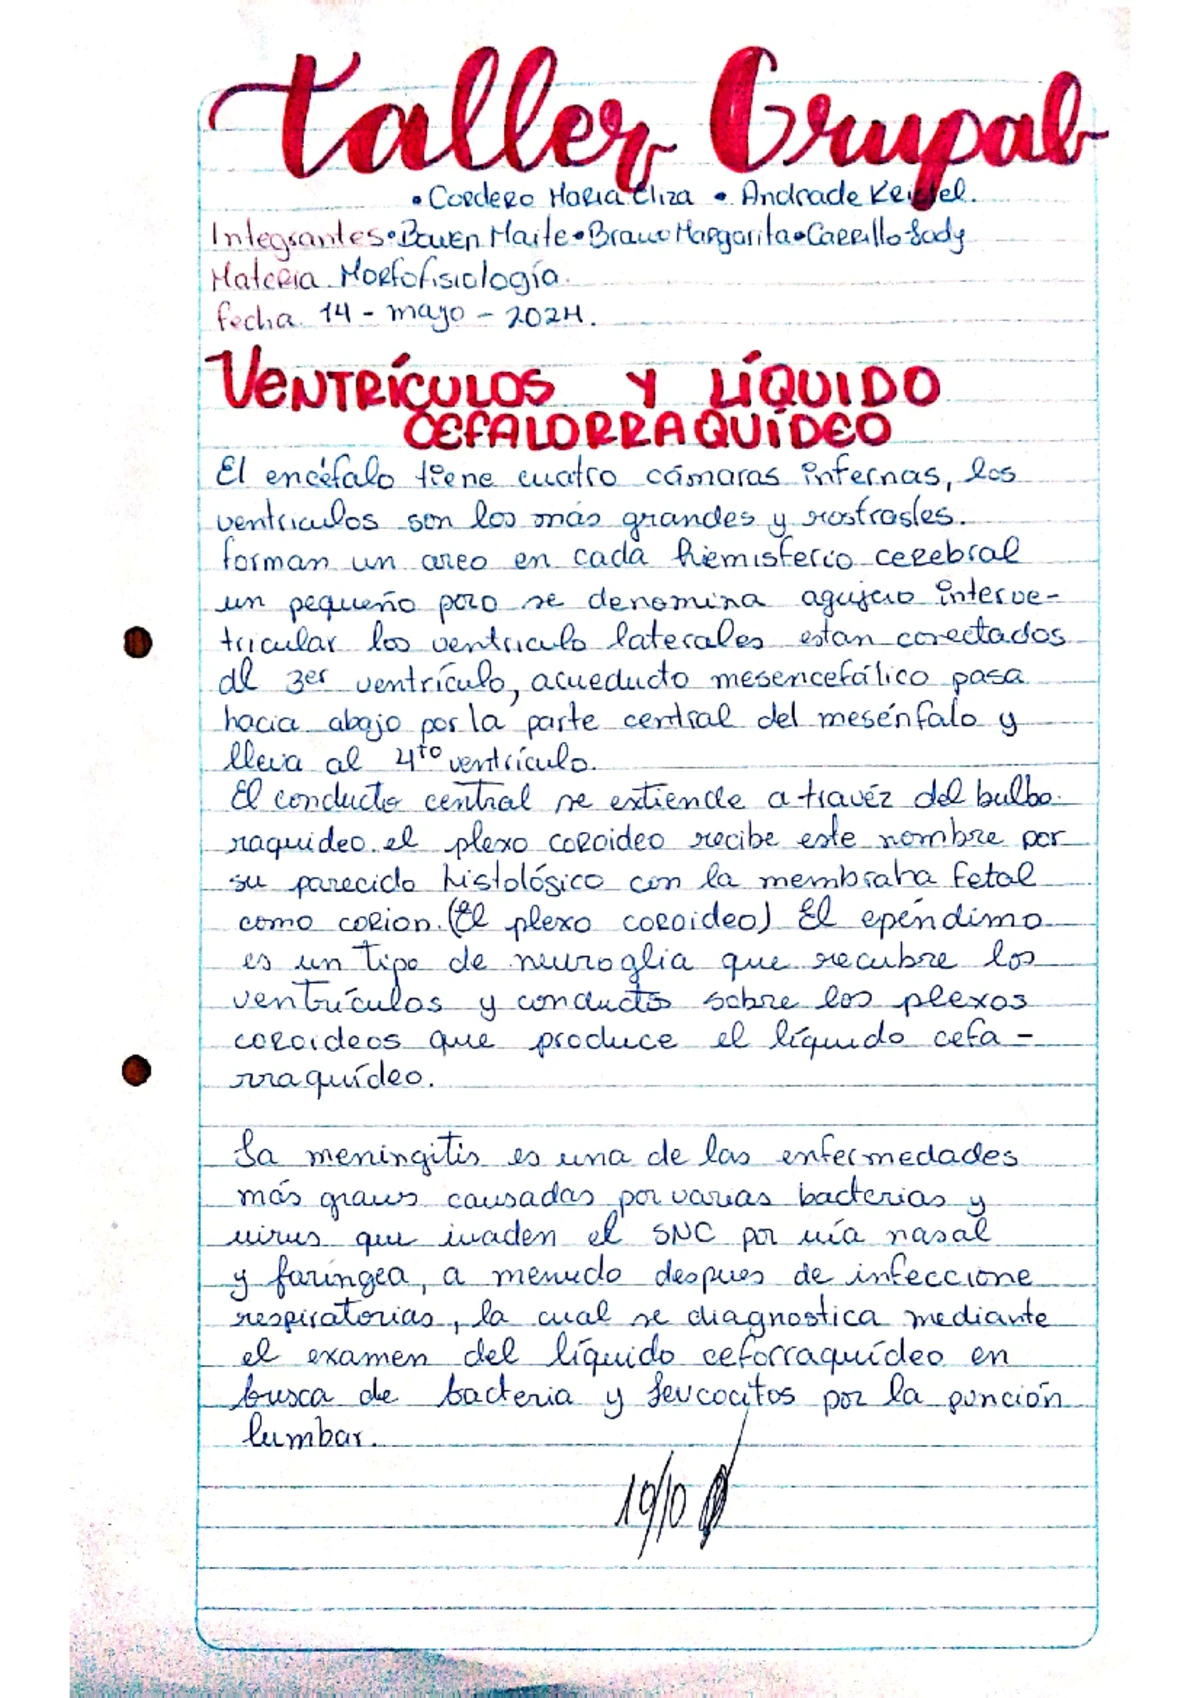 Taller Grupal
• Cordero Maria Eliza • Andrade Kristel.
Integrantes • Bowen Maite • Bravo Margarita • Carrillo Sady
Materia Morfofisiología.
fecha 14 - mayo - 2024.
VENTRÍCULOS Y LÍQUIDO
CEFALORRAQUÍDEO
El encéfalo tiene cuatro cámaras internas, los
ventriculos son los más grandes y rostrasles.
forman un arco en cada hemisferio cerebral
un pequeño poro se denomina agujero interve-
tricular los ventriculo laterales estan conectados
al 3er ventrículo, acueducto mesencefálico pasa
hacia abajo por la parte central del mesénfalo y
lleva al 4to ventrículo.
El conducto central se extiende a travéz del bulbo
raquideo. el plexo coroideo recibe este nombre por
su parecido histológico con la membraha fetal
como corion. (El plexo coroideo) El epéndimo
es un tipo de neuroglia que recubre los
ventrículos y conducto sobre los plexos
coroideos que produce el líquido cefa -
rraquídeo.
La meningitis es una de las enfermedades
más graves causadas por varias bacterias y
virus que invaden el SNC por vía nasal
y faríngea, a menudo despues de infeccione
respiratorias, la cual se diagnostica mediante
el examen del líquido ceforraquídeo en
busca de bacteria y leucocitos por la punción
lumbar.
10/10